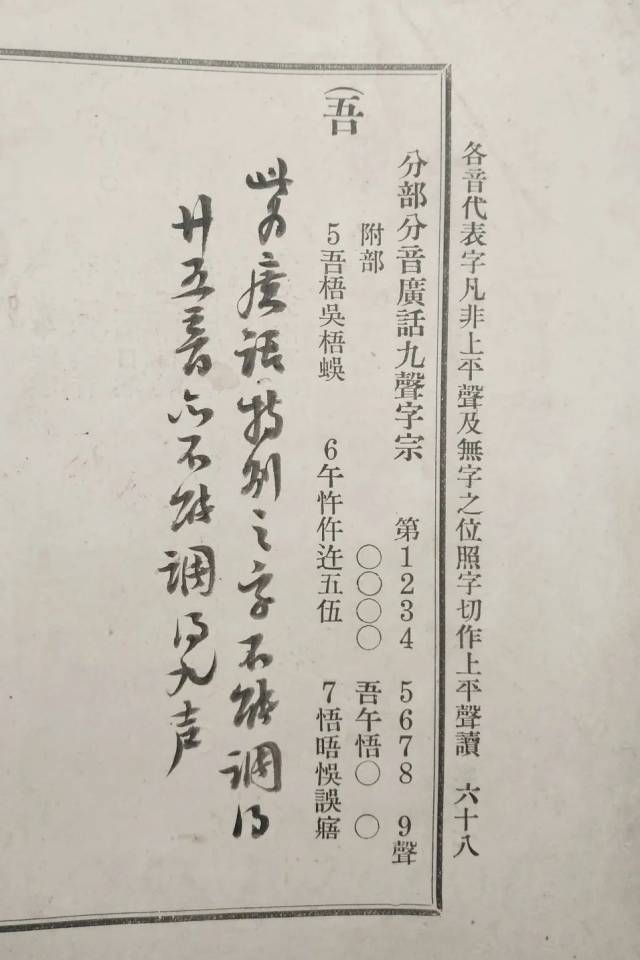 各音代表字凡非上平聲及無字之位照字切作上平聲讀 六十八
分部分音廣話九聲字宗 第1234 5678 9聲
附部 〇〇〇〇 吾午悟〇 〇
(吾
5吾梧吳梧蜈 6午忤仵迕五伍 7悟晤悞誤寤
此为廣話特别之字不能調得
廿五音亦不能調得九声